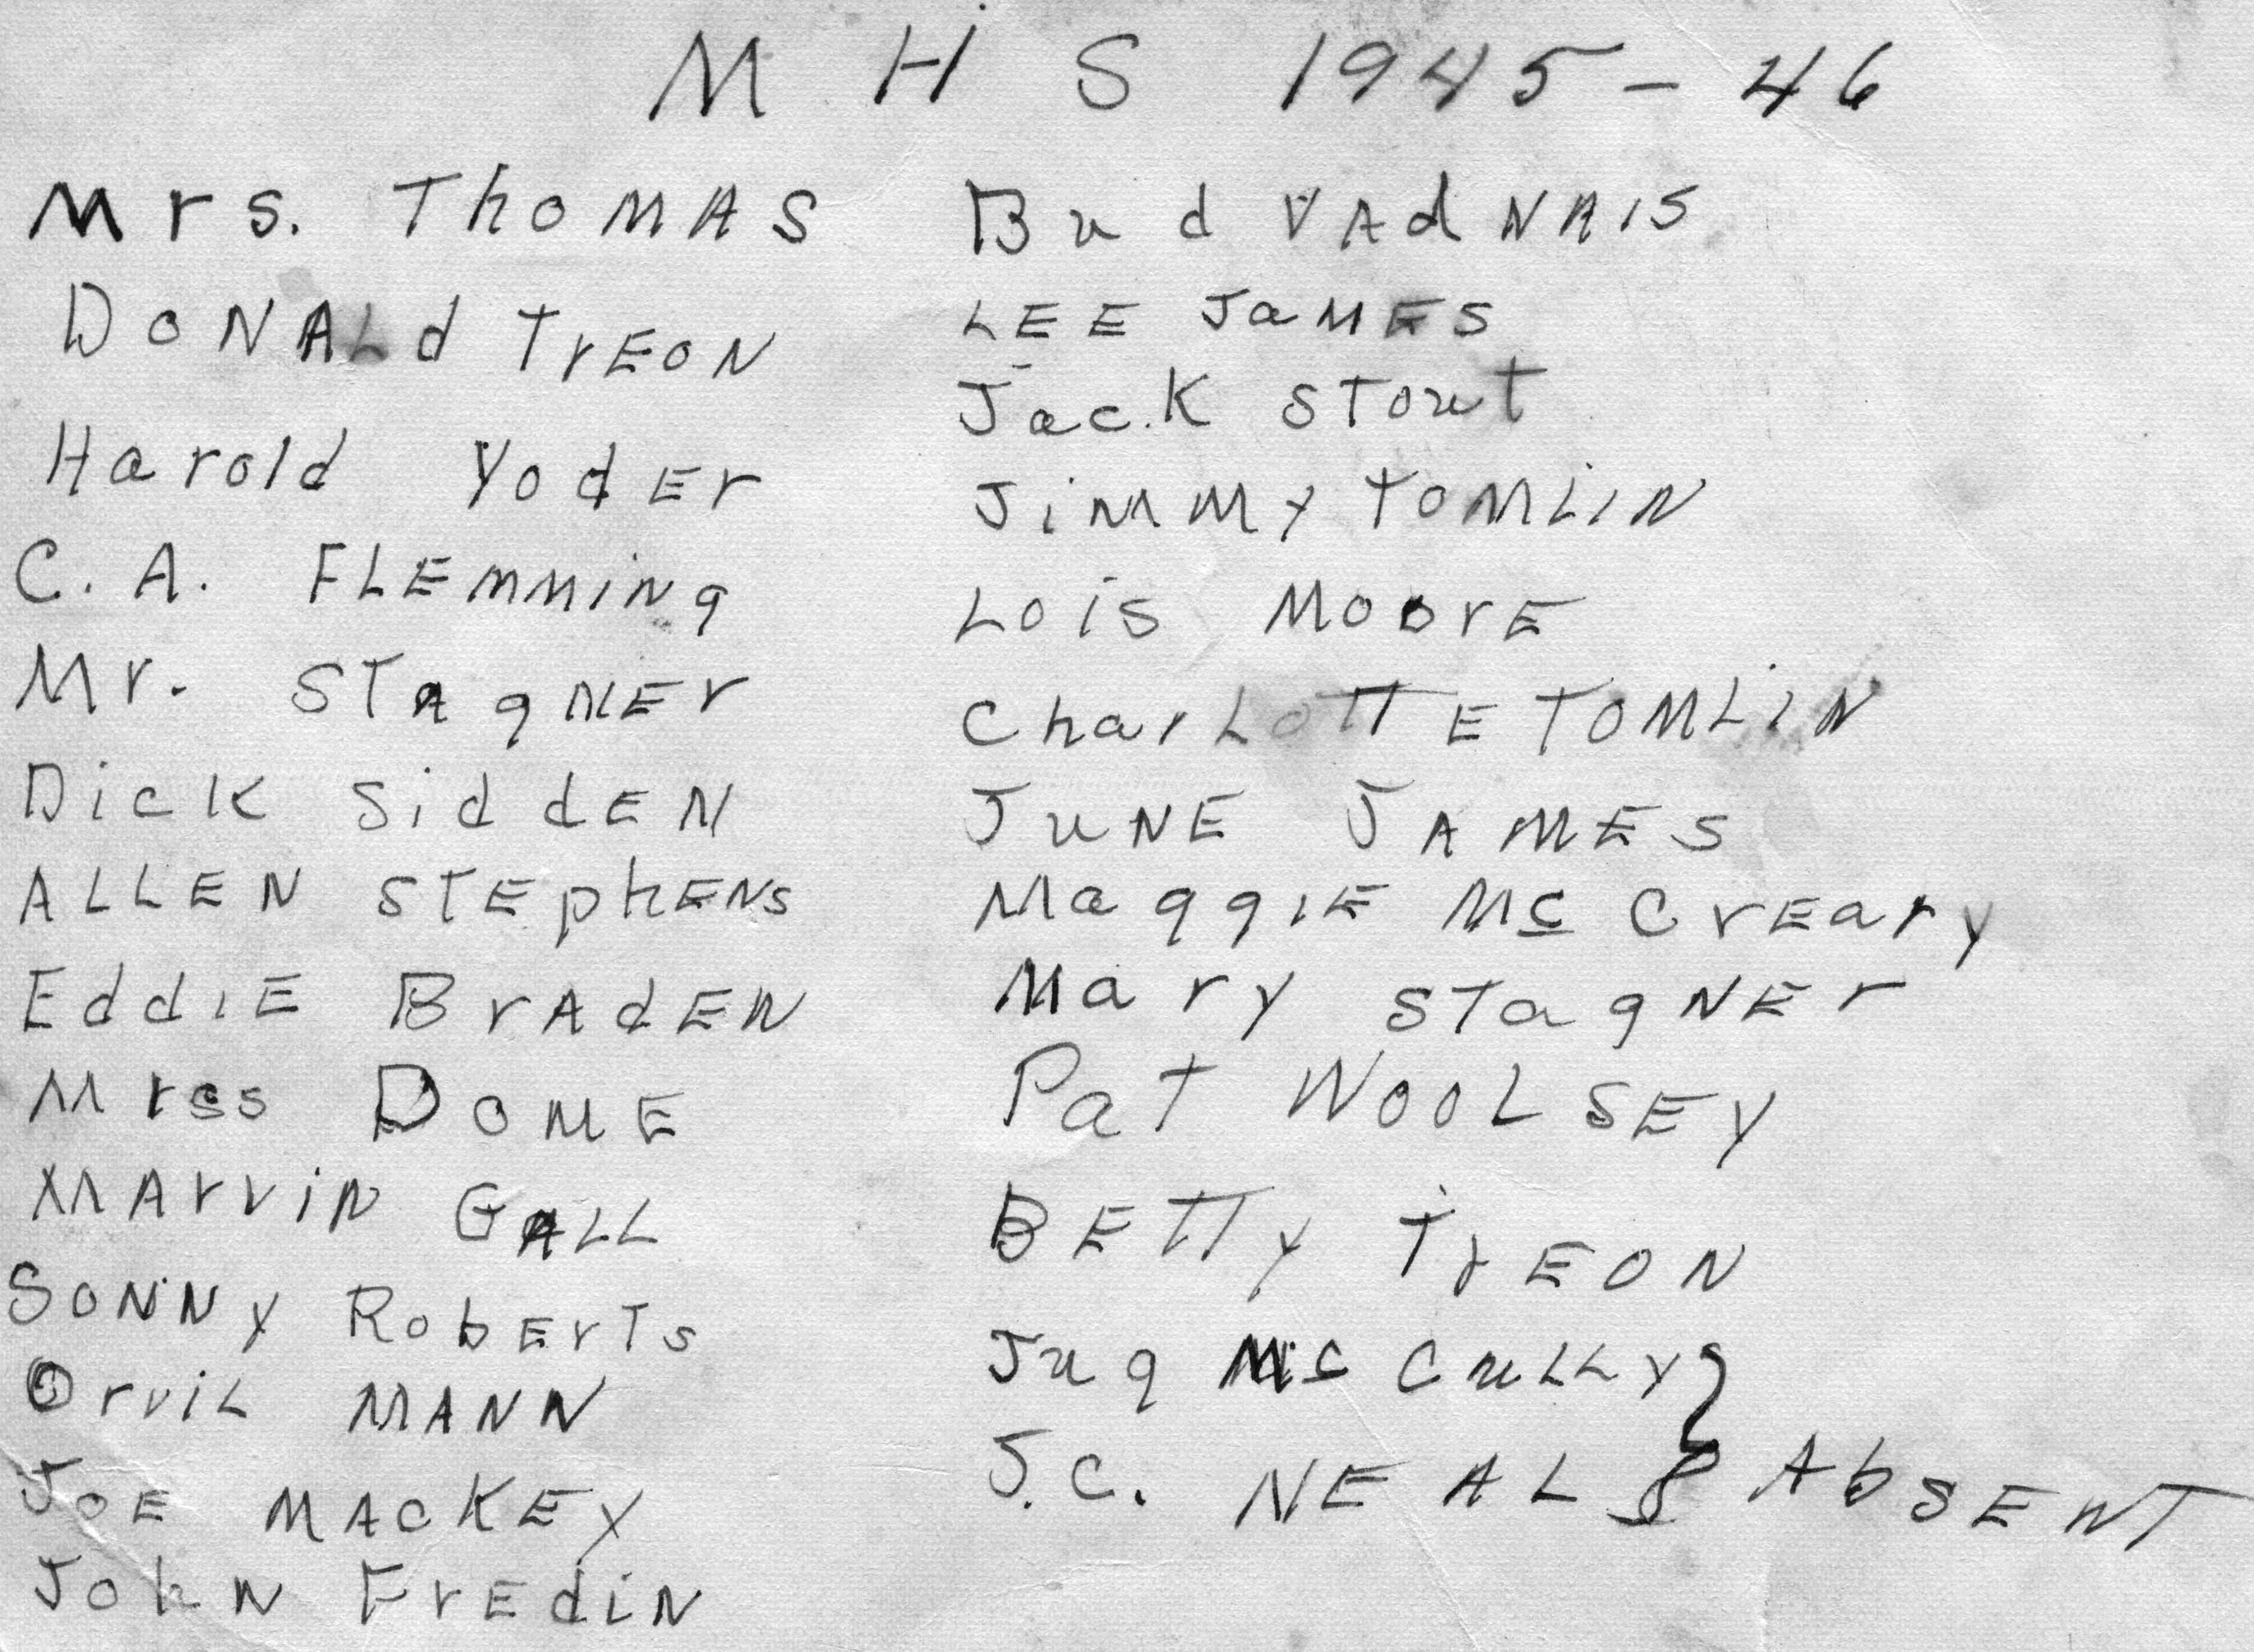 M H S 1945-46
Mrs. ThoMAS
DONALd TrEON
Harold YodEr
C. A. FLEmming
Mr. STAgNEr
Dick SiddEN
ALLEN STEphENs
EddiE BrAdEN
Mrss DOME
MArviN GALL
SONNy RobErTs
OrviL MANN
JOE MACKEY
John FrEdiN
Bud VAdNAIS
LEE JaMES
Jack STouT
JiMMy TOMLiN
LOiS MOOrE
CharLOTTE TOMLiN
JuNE JAMES
MaggiE Mc CrEary
Mary STagNEr
PaT WOOLSEY
BETTy TrEON
Jug Mc CuLLY }
J.C. NEAL } AbSENT